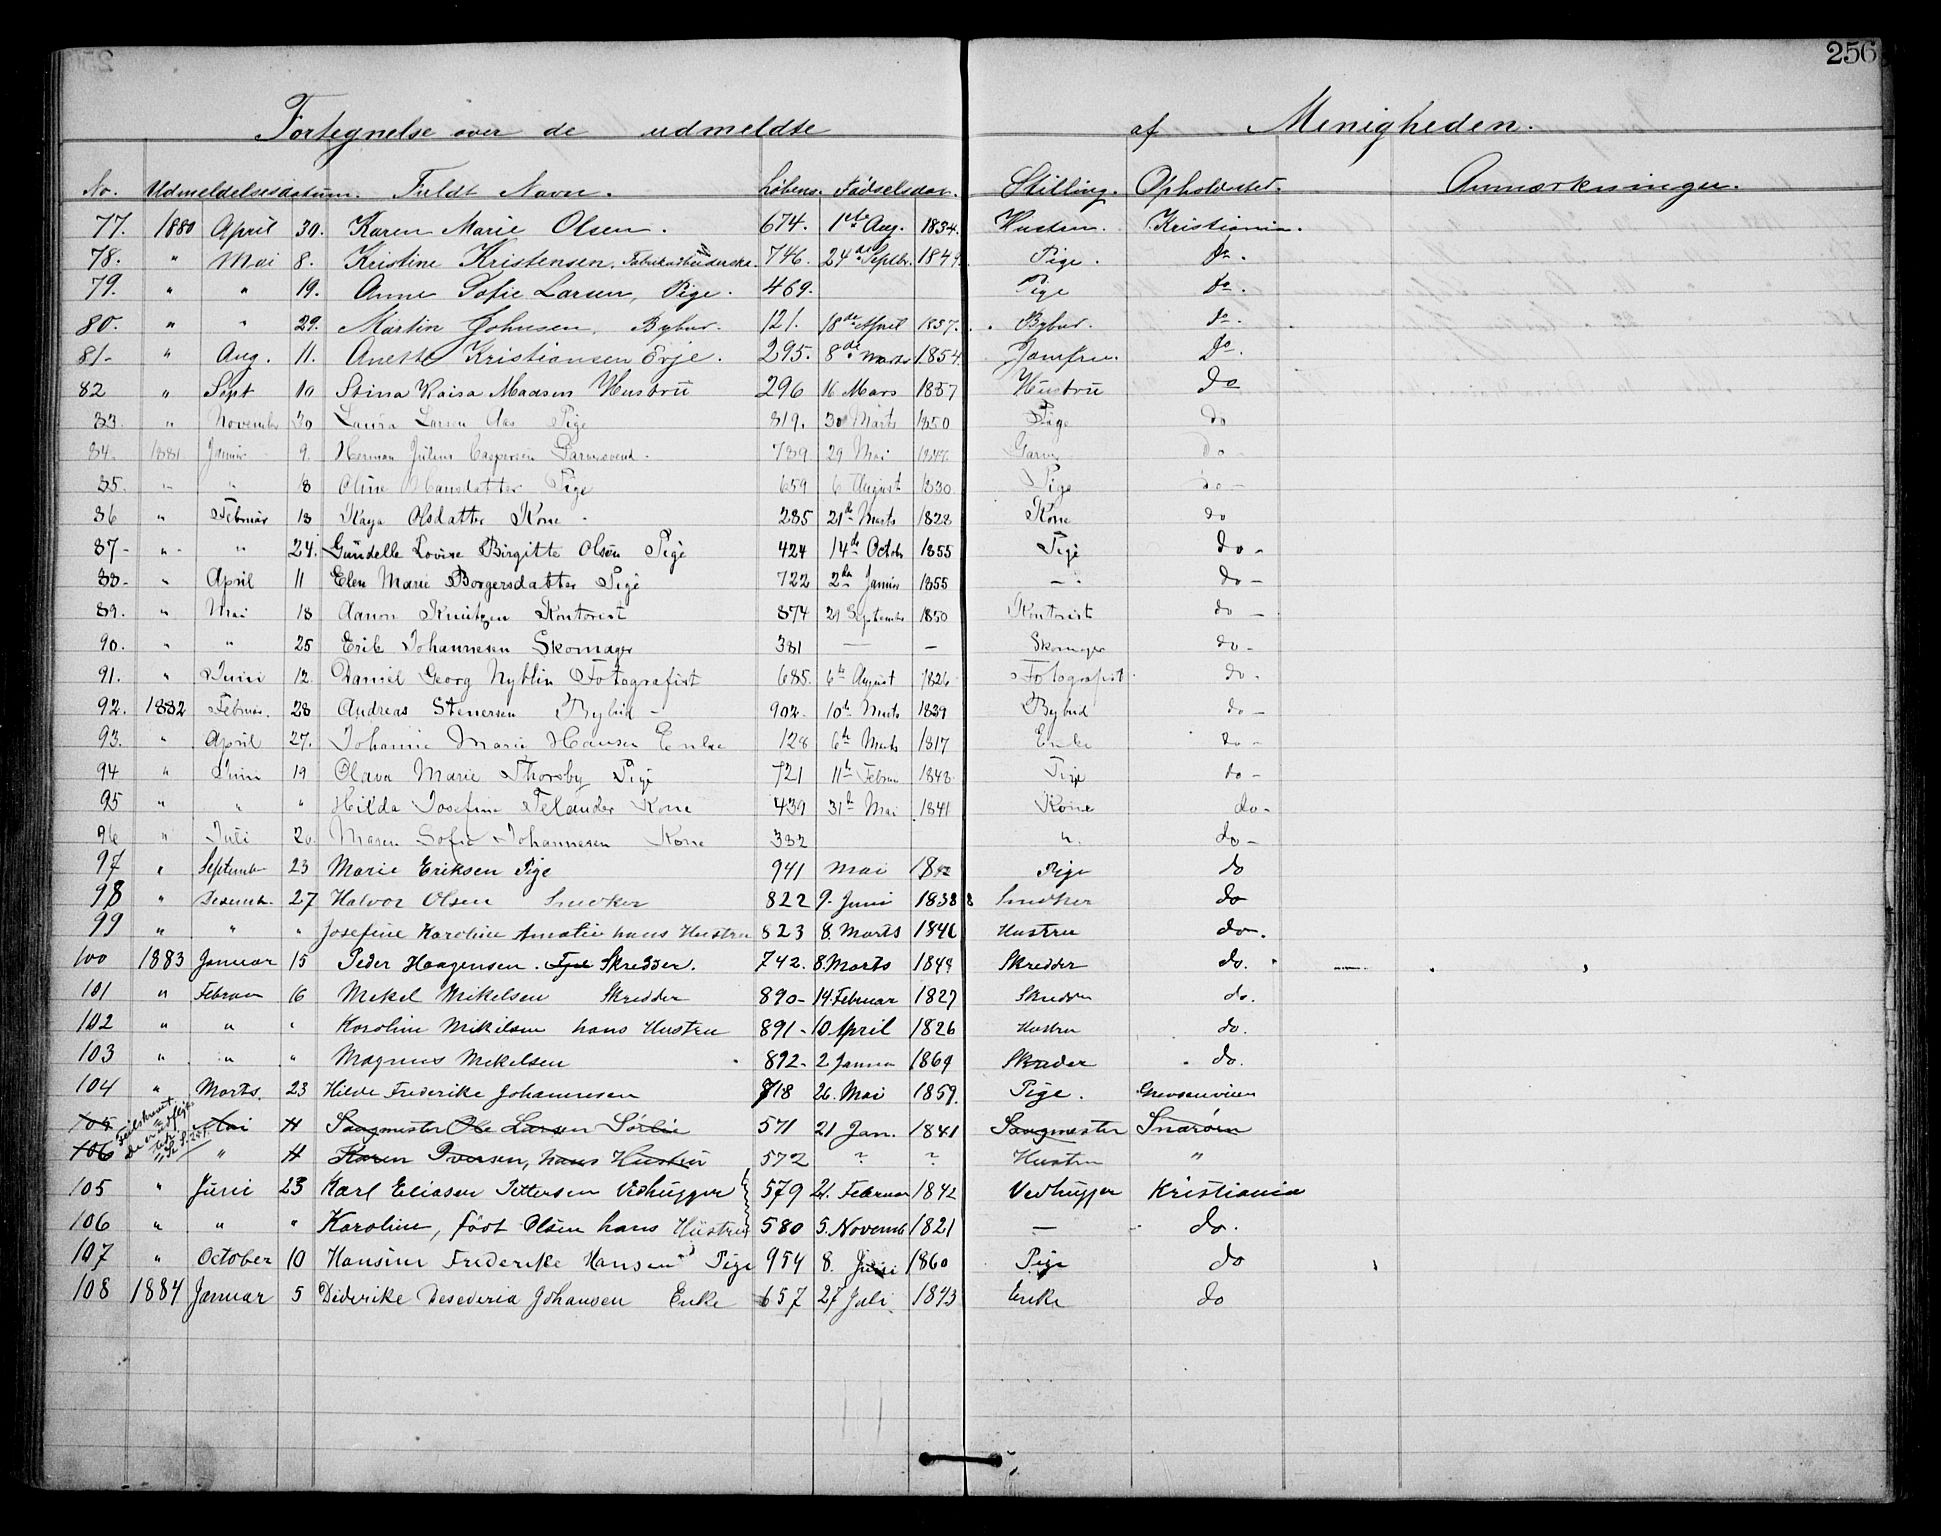 256
Fortegnelse over de udmeldte af Menigheden.
No. Udmeldelsesdatum. Fuldt Navn. Løbens. Fødselsdat. Stilling. Opholdsted. Anmærkninger.
77. 1880 April 30. Karen Marie Olsen. 674. 1ste Aug. 1834. Kristiania.
78. " Mai 8. Kristine Kristensen, Fabrikarbeiderske. 746. 24de Septbr. 1849. Pige. Do.
79. " " 19. Anne Sofie Larsen, Pige. 469. Pige Do.
80. " " 29. Martin Johnsen, Bybud. 121. 18de April 1857. Bybud. Do.
81- " Aug. 11. Anette Kristiansen Evje. 295. 8de Marts 1854. Jomfru. Do.
82 " Sept 10 Stina Kaisa Madsen Hustru 296 16 Mars 1857 Hustru do
83. " November 30 Laura Larsen Aas Pige 819. 30 Marts 1850 Pige do
84. 1881. Januar 9. Herman Julius Caspersen Garversvend. 789 29 Mai Garver Do -
85. " " 8 Oline Hansdatter Pige 659 6 August 1830. Pige do -
86 " Februar 13 Kaya Olsdatter Kone - 285 21de Marts 1828 Kone do
87- " " 24. Gundelle Lovise Birgitte Olsen Pige 424 14de Octobr 1855 Pige do -
88- " April 11 Elen Marie Borgersdatter Pige 722 2den Januar 1855 - do -
89. " Mai 18 Aanon Knutzen Kontorist 874 21 September 1850 Kontorist do -
90. " " 25 Erik Johannesen Skomager 381 — - Skomager do -
91. " Juni 12. Daniel Georg Nyblin Fotografist 685. 6te August 1826 Fotografist. do -
92. 1882 Februar. 28 Andreas Stenersen Bybud - 902. 10de Marts 1839 Bybud do -
93. " April 27. Johanne Marie Hansen Enke 128 6te Marts 1817 Enke do -
94 " Juni 19 Olava Marie Thorsby Pige 721 11te Februar 1848 Pige do -
95 " " " Hilda Josefine Felander Kone 439 31te Mai 1841 Kone do -
96 " Juli 20. Maren Sofie Johannesen Kone 332 ". do -
97 " Septemb 23 Marie Eriksen Pige 941 Mai Pige do
98 " Desemb. 27 Halvor Olsen Snedker 822 9. Juni 1838 8 Snedker do
99 " " " Josefine Karoline Amalie hans Hustru 823 8. Marts 1846 Hustru do.
100 1883 Januar 15 Peder Haagensen. Skredder. 742. 8. Marts 1849 Skredder do.
101 " Februar 16 Mekel Mikelsen Skredder 890- 14. Februar 1827 Skredder do.
102 " " " Karoline Mikelsen hans Hustru 891- 10 April 1826 Hustru do.
103 " " " Magnus Mekelsen 892- 2 Januar 1869 Skreder do.
104 " Marts. 23 Hilda Frederike Johannesen 718 26. Mai 1859. Pige. Grevsenveien
105 Mai 11 Saugmester Ole Larsen Sørlie 571 21 Jan. 1841 Saugmester Snarøen
106 " " 11 Karen Iversen, hans Hustru 572 ? ? Hustru "
105 " Juni 23 Karl Eliasen Pettersen Vedhugger 579 21. Februar 1842 Vedhugger Kristiania
106 " " " Karoline, født Olsen hans Hustru 580 5. Novemb 1821 — do.
107 " October 10 Hansine Frederike Hansen Pige 954 8. Juni 1860 Pige do
108 1884 Januar 5 Diderike Desederia Johansen Enke 657 27 Juli. 1843 Enke do